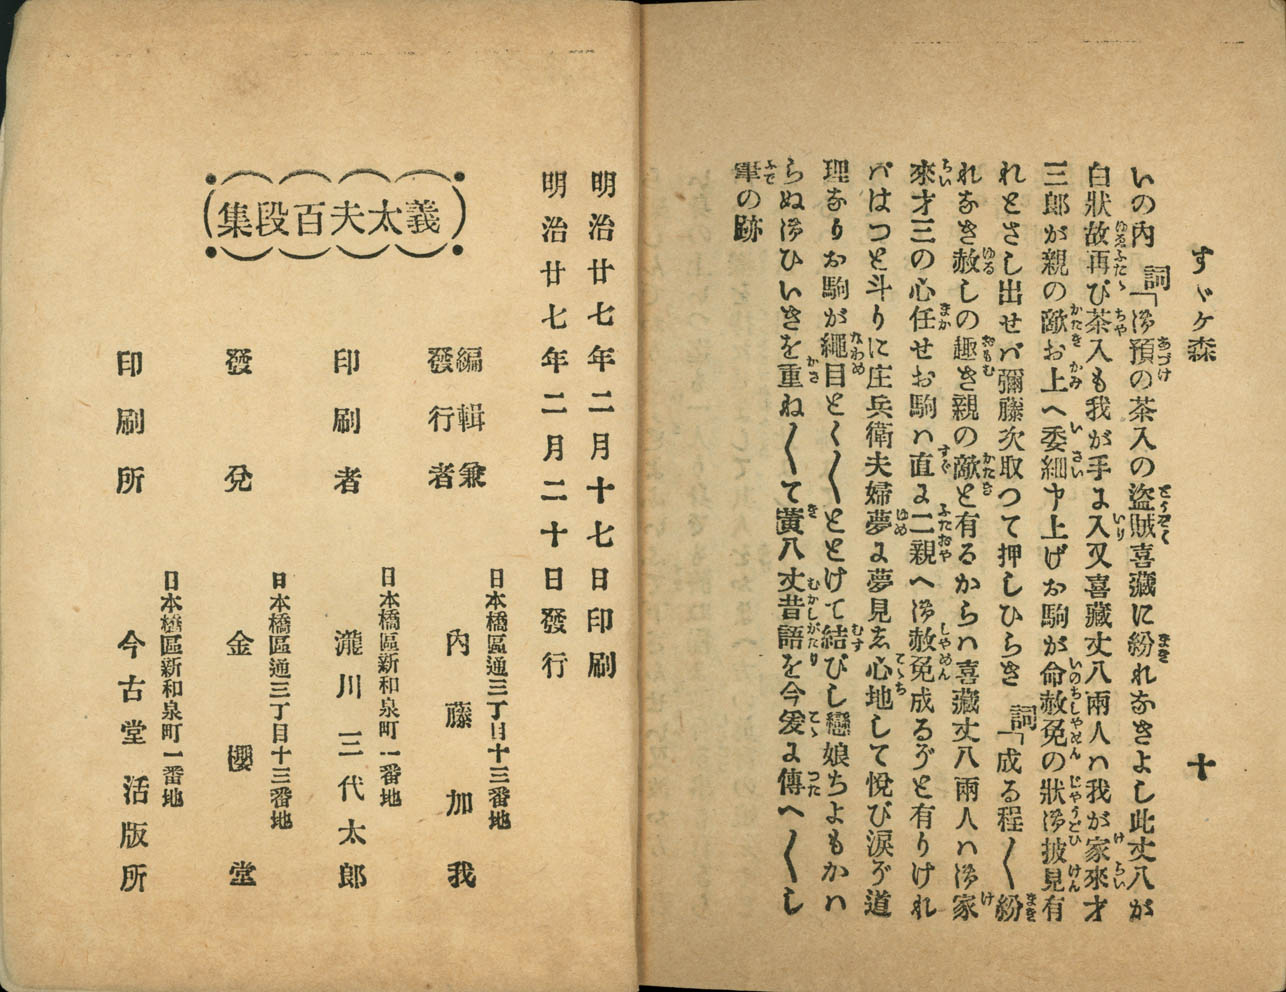 すゞヶ森
十
いの内 詞「御預の茶入の盗賊喜藏に紛れなきよし此丈八が
白狀故再び茶入も我が手に入又喜藏丈八兩人ハ我が家來才
三郎が親の敵お上へ委細申上げお駒が命赦免の狀御披見有
れとさし出せバ彌藤次取つて押しひらき 詞「成る程〱紛
れなき赦しの趣き親の敵と有るからハ喜藏丈八兩人ハ御家
來才三の心任せお駒ハ直に二親へ御赦免成るぞと有りけれ
バはつと斗りに庄兵衛夫婦夢に夢見る心地して悅び淚ぞ道
理なりお駒が繩目とく〱ととけて結びし戀娘ちよもかハ
らぬ御ひいきを重ね〱て黃八丈昔語を今爰に傳へ〱し
筆の跡
明治廿七年二月十七日印刷
明治廿七年二月二十日發行
義太夫百段集
編輯兼
發行者
日本橋區通三丁目十三番地
內藤加我
印刷者
日本橋區新和泉町一番地
瀧川三代太郎
發兌
日本橋區通三丁目十三番地
金櫻堂
印刷所
日本橋區新和泉町一番地
今古堂活版所